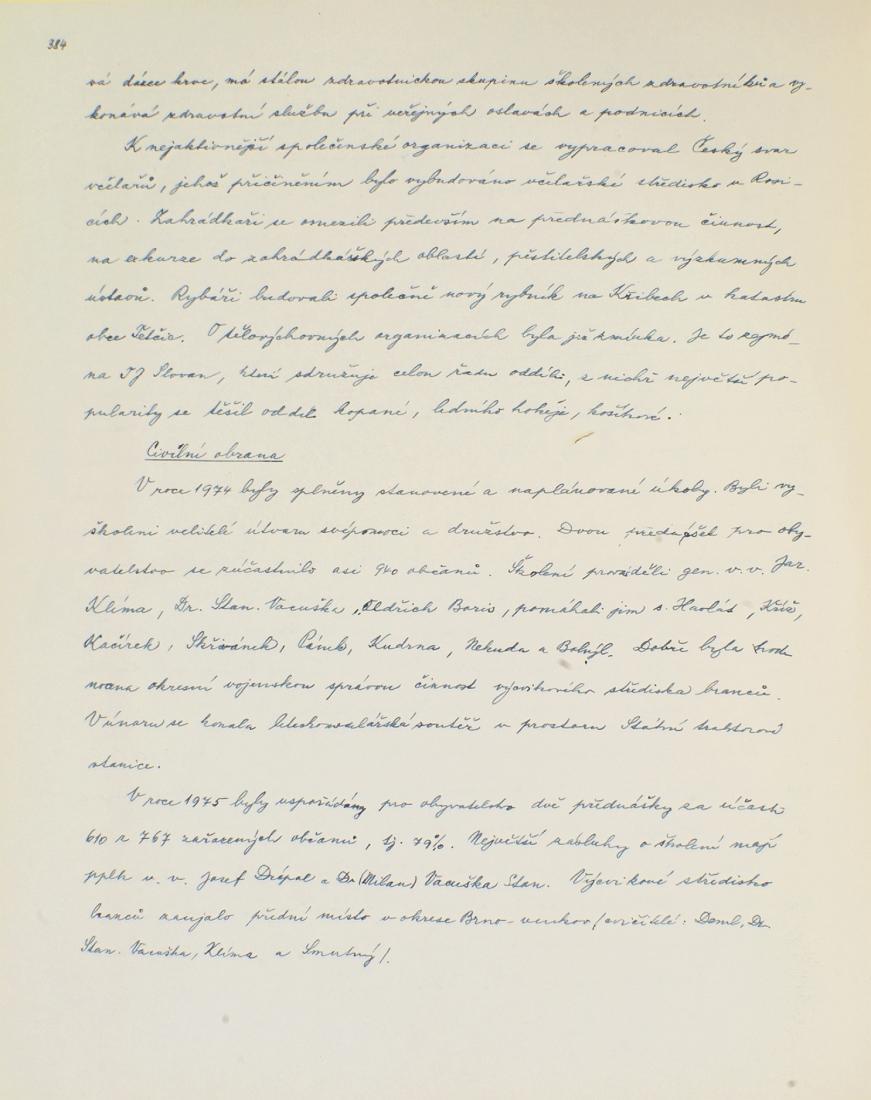 384
vá dárce krve, má stálou zdravotnickou skupinu školených zdravotníků a vy-
konává zdravotní službu při veřejných oslavách a podnicích.
K nejaktivnější společenské organizaci se vypracoval Český svaz
včelařů, jehož přičiněním bylo vybudováno včelařské středisko v Rosi-
cích. Zahrádkáři se omezili především na přednáškovou činnost,
na exkurze do zahrádkářských oblastí, pěstitelských a výzkumných
ústavů. Rybáři budovali společně nový rybník na Křibech v katastru
obce Tetčic. O tělovýchovných organizacích byla již zmínka. Je to zejmé-
na TJ Slovan, která sdružuje celou řadu oddílů, z nichž největší po-
pularity se těšil oddíl kopané, ledního hokeje, košíkové.
Civilní obrana
V roce 1974 byly splněny stanovené a naplánované úkoly. Byli vy-
školeni velitelé útvaru svépomoci a družstva. Dvou přednášek pro oby-
vatelstvo se zúčastnilo asi 940 občanů. Školení prováděli gen. v. v. Jar.
Klíma, Dr. Stan. Vacuška, Oldřich Boris, pomáhali jim s. Havlát, Kříž,
Kačírek, Skřivánek, Pánek, Kudrna, Nekuda a Dobře byla hod-
nocena okresní vojenskou správou činnost výcvikového střediska branců.
V únoru se konala leteckomodelářská soutěž v prostoru Státní traktorové
stanice.
V roce 1975 byly uspořádány pro obyvatelstvo dvě přednášky za účasti
610 z 767 zařazených občanů, tj. 79%. Největší zásluhy o školení mají
pplk v. v. Josef Drápal a Dr (Milan) Vacuška Stan. Výcvikové středisko
branců zaujalo přední místo v okrese Brno-venkov /cvičitelé: Deml, Dr.
Stan. Vacuška, Klíma a Smutný/.